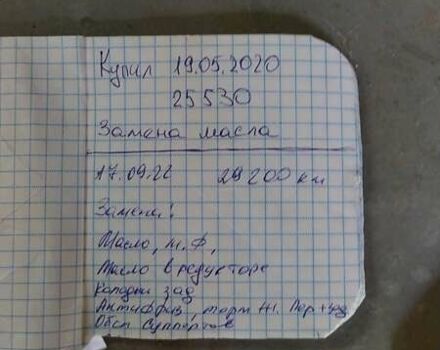 Купил 19.05.2020
25530
Замена масла
17.09.22 29200 км
Замени:
Масло, м.ф,
Масло в редукторе
Колодки зад
Антифриз, торм ж. Пер + зад
Обсл суппортов